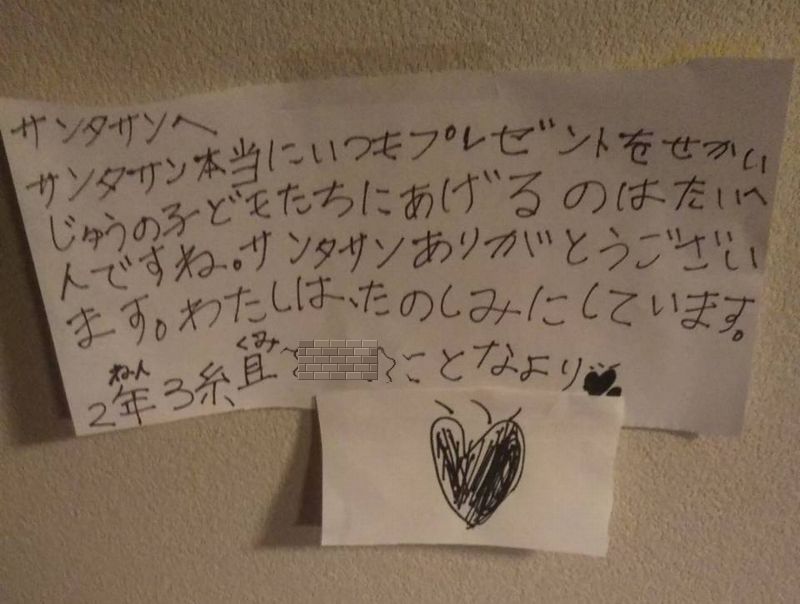 サンタサンへ
サンタサン本当にいつもプレゼントをせかい
じゅうの子どもたちにあげるのはたいへ
んですね。サンタサンありがとうござい
ます。わたしは、たのしみにしています。
2年3組ことなより
ねん
くみ